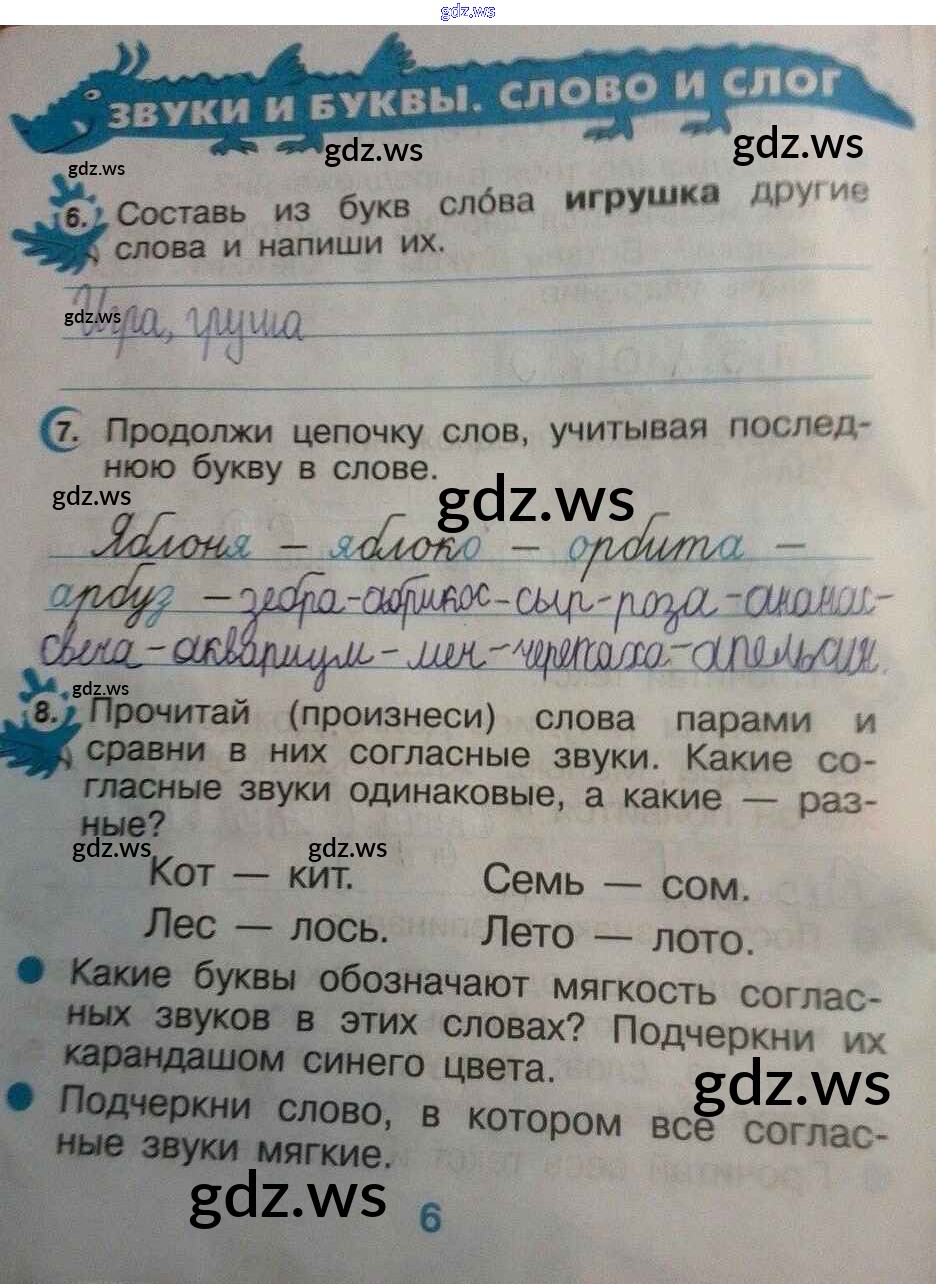 gdz.ws
ЗВУКИ И БУКВЫ. СЛОВО И СЛОГ
gdz.ws
gdz.ws
gdz.ws
6. Составь из букв сло́ва игрушка другие
слова и напиши их.
gdz.ws
Игра, груша
7. Продолжи цепочку слов, учитывая послед-
нюю букву в слове.
gdz.ws
gdz.ws
Яблоня – яблоко – орбита –
арбуз – зебра-абрикос-сыр-роза-ананас-
свеча-аквариум-меч-черепаха-апельсин.
gdz.ws
8. Прочитай (произнеси) слова парами и
сравни в них согласные звуки. Какие со-
гласные звуки одинаковые, а какие — раз-
ные?
gdz.ws
gdz.ws
Кот — кит. Семь — сом.
Лес — лось. Лето — лото.
Какие буквы обозначают мягкость соглас-
ных звуков в этих словах? Подчеркни их
карандашом синего цвета.
gdz.ws
Подчеркни слово, в котором все соглас-
ные звуки мягкие.
gdz.ws
6